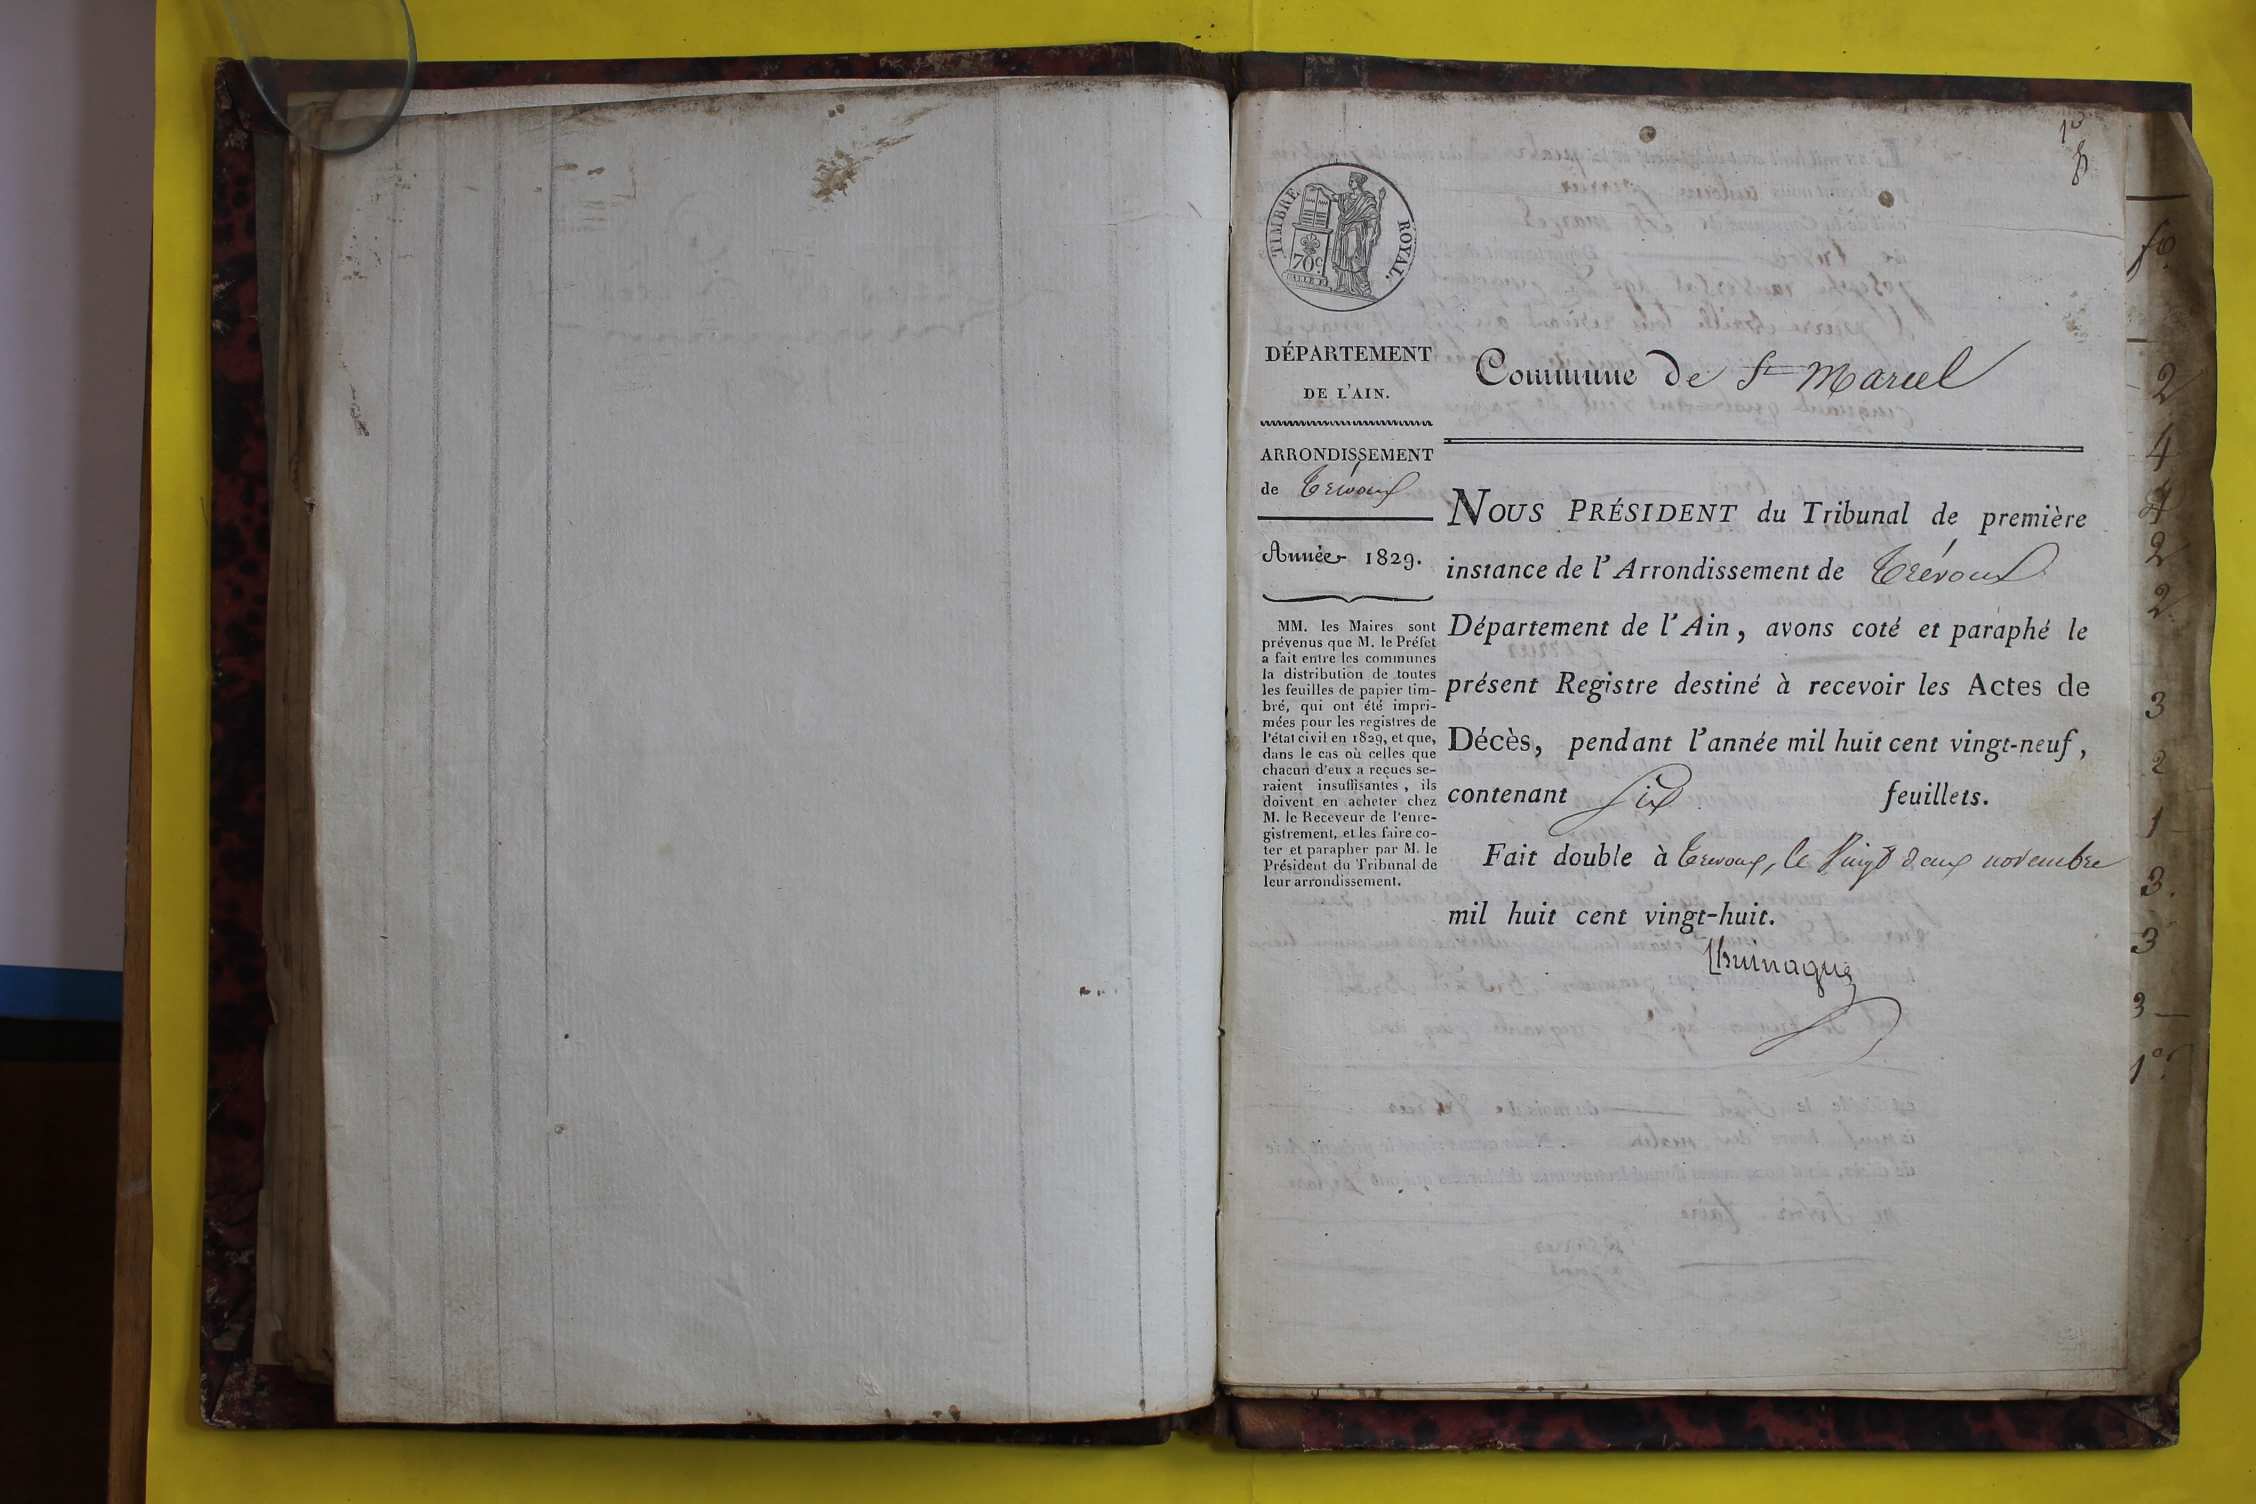 1o
TIMBRE ROYAL.
70c
DÉPARTEMENT
DE L'AIN.
ARRONDISSEMENT
de Trévoux
Année 1829.
MM. les Maires sont
prévenus que M. le Préfet
a fait entre les communes
la distribution de toutes
les feuilles de papier tim-
bré, qui ont été impri-
mées pour les registres de
l'état civil en 1829, et que,
dans le cas où celles que
chacun d'eux a reçues se-
raient insuffisantes, ils
doivent en acheter chez
M. le Receveur de l'enre-
gistrement, et les faire co-
ter et parapher par M. le
Président du Tribunal de
leur arrondissement.
Commune de St Marcel
NOUS PRÉSIDENT du Tribunal de première
instance de l'Arrondissement de Trévoux
Département de l'Ain, avons coté et paraphé le
présent Registre destiné à recevoir les Actes de
Décès, pendant l'année mil huit cent vingt-neuf,
contenant Six feuillets.
Fait double à Trevoux, le Vingt deux novembre
mil huit cent vingt-huit.
fo.
2
4
4
2
2
3
2
1
3.
3
3
1o.